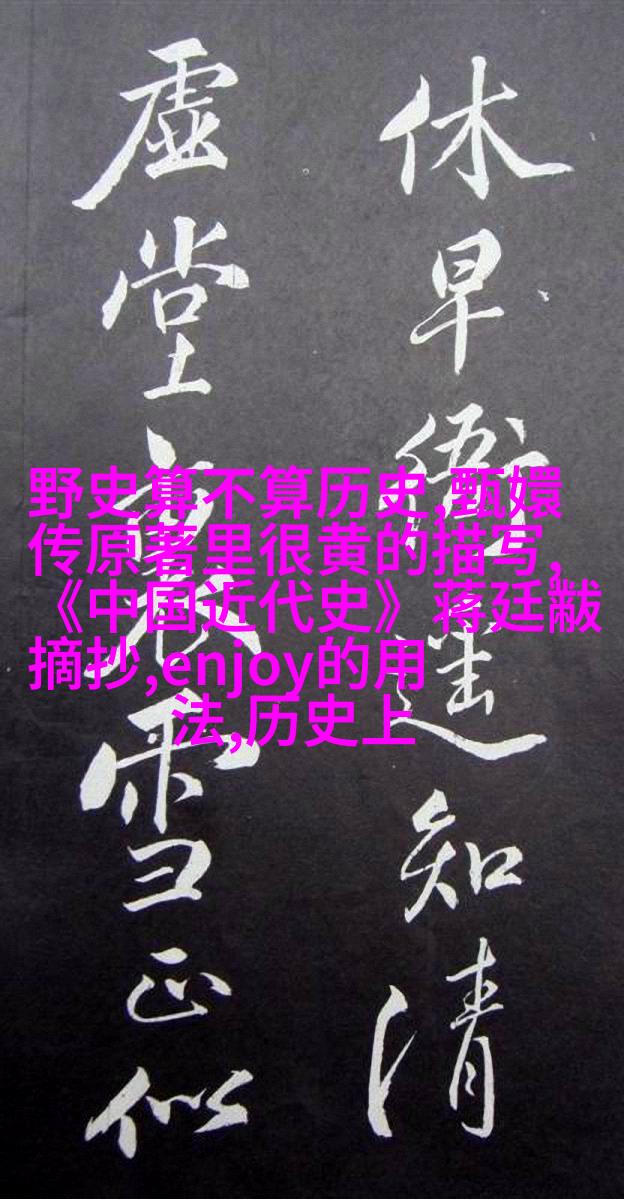 休早衙遥知清
虚堂雪正似
野史算不算历史,甄嬛
传原著里很黄的描写,
《中国近代史》蒋廷黻
摘抄,enjoy的用
法,历史上